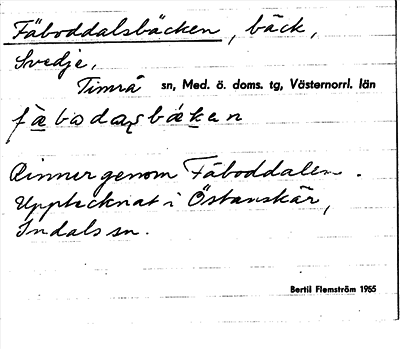 Fäboddalsbäcken, bäck,
Svedje,
Timrå sn, Med. ö. doms. tg, Västernorrl. län
Rinner genom Fäboddalen.
Upptecknat i Östanskär,
Indals sn.
Bertil Flemström 1965